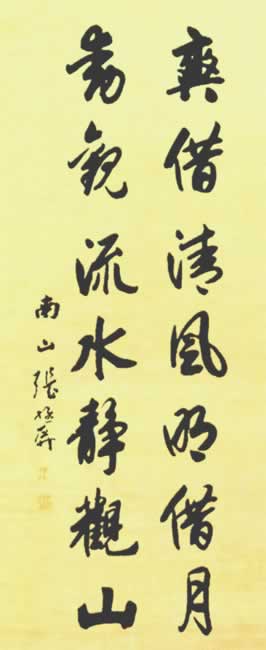 爽借清風明借月
動觀流水靜觀山
南山張